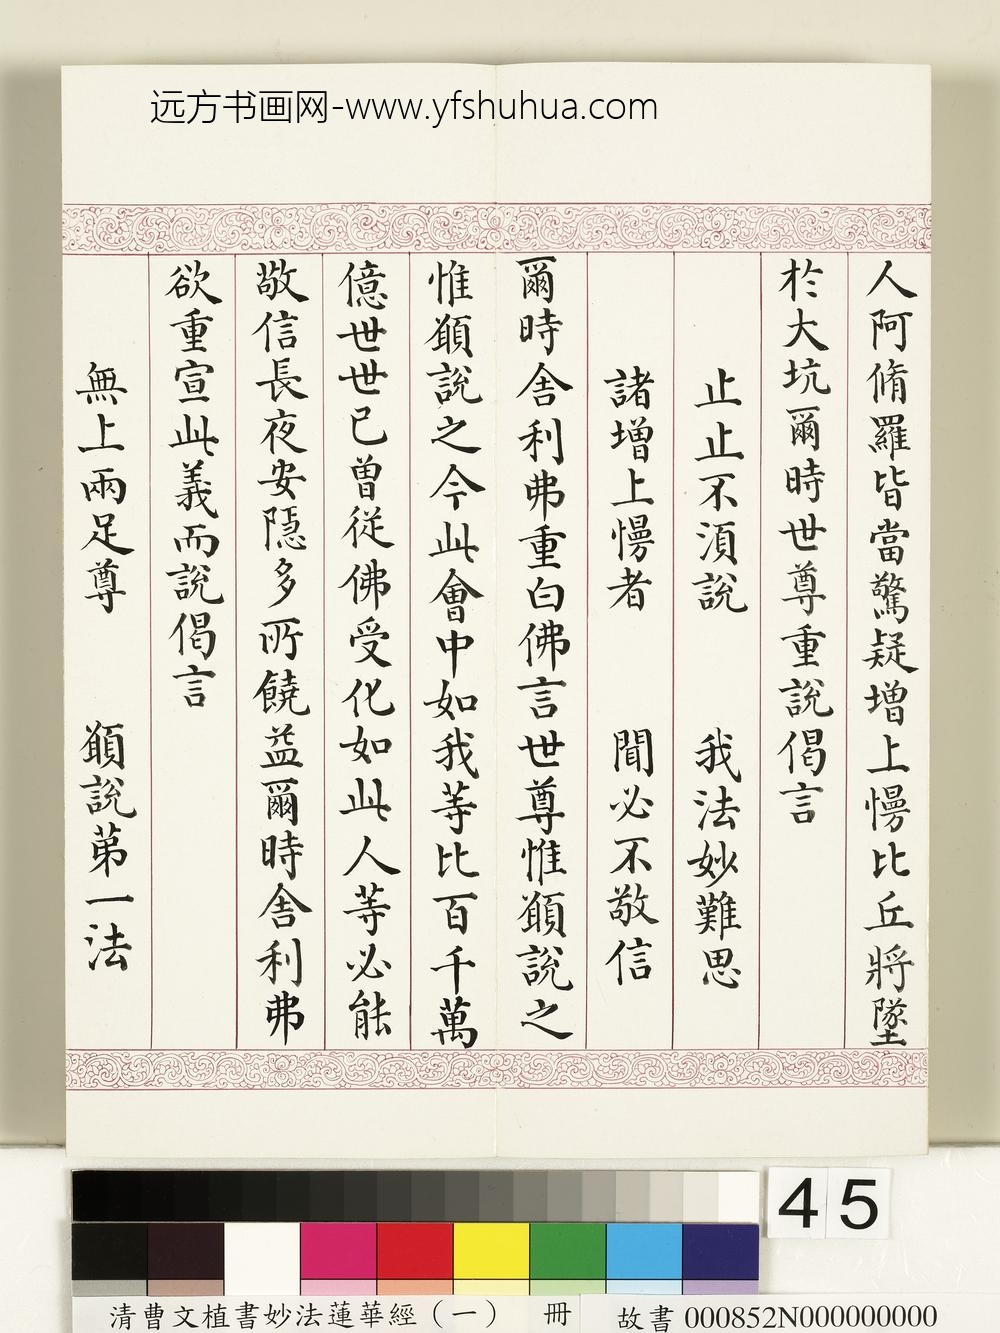 远方书画网-www.yfshuhua.com
人阿脩羅皆當驚疑增上慢比丘將墜
於大坑爾時世尊重說偈言
止止不須說　我法妙難思
諸增上慢者　聞必不敬信
爾時舍利弗重白佛言世尊惟願說之
惟願說之今此會中如我等比百千萬
億世世已曾從佛受化如此人等必能
敬信長夜安隱多所饒益爾時舍利弗
欲重宣此義而說偈言
無上兩足尊　願說第一法
45
清曹文植書妙法蓮華經（一） 冊 故書 000852N000000000